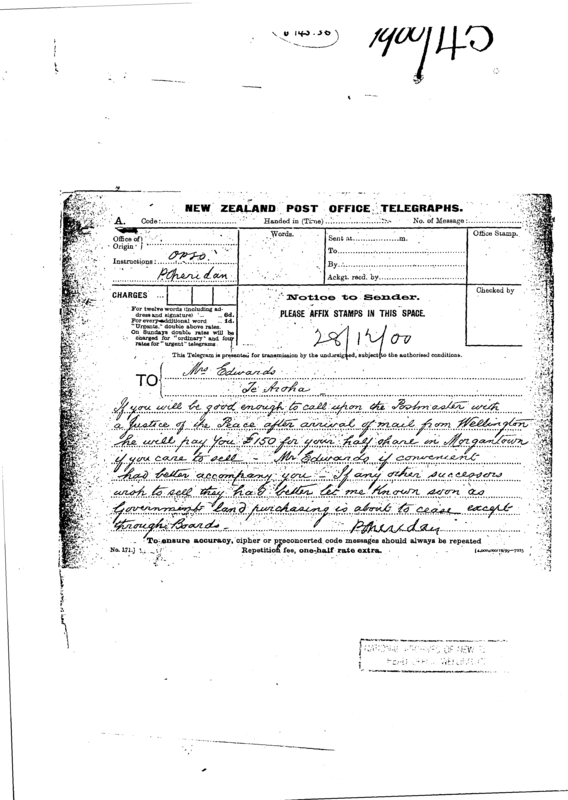 1900/45
NEW ZEALAND POST OFFICE TELEGRAPHS.
A. Code: Handed in (Time) No. of Message:
Office of Origin Words. Sent at m. Office Stamp.
To
Instructions: OPSO. By
P Sheridan Ackgt. recd. by
CHARGES ... Notice to Sender. Checked by
For twelve words (including ad-
dress and signature) ... 6d.
For every additional word 1d.
"Urgents," double above rates.
On Sundays double rates will be
charged for "ordinary" and four
rates for "urgent" telegrams
PLEASE AFFIX STAMPS IN THIS SPACE.
28/12/00
This Telegram is presented for transmission by the undersigned, subject to the authorised conditions.
TO Mrs Edwards
Te Aroha
If you will be good enough to call upon the Postmaster with
a Justice of the Peace after arrival of mail from Wellington
he will pay you £150 for your half share in Morgantown
if you care to sell - Mr Edwards if convenient
had better accompany you. If any other successors
wish to sell they had better let me know soon as
Government land purchasing is about to cease except
through Boards-
P Sheridan
To ensure accuracy, cipher or preconcerted code messages should always be repeated
No. 171.) Repetition fee, one-half rate extra.
NATIONAL ARCHIVES OF NEW
HEAD OFFICE WELLINGTON